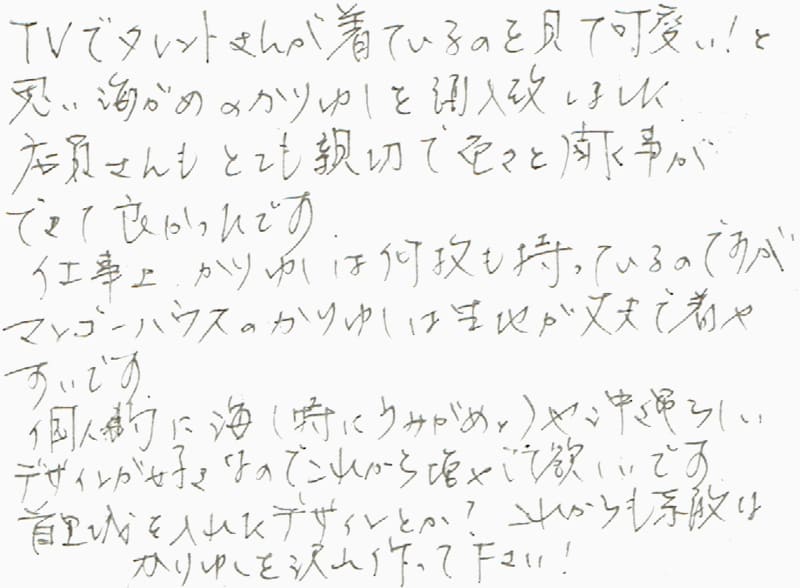 TVでタレントさんが着ているのを見て可愛い!と
思い海がめのかりゆしを購入致しました
店員さんもとても親切で色々と聞く事が
できて良かったです
仕事上、かりゆしは何枚も持っているのですが
マンゴーハウスのかりゆしは生地が丈夫で着や
すいです
個人的に海(特にうみがめ♪)や沖縄らしい
デザインが好きなのでこれから増やして欲しいです
首里城を入れたデザインとか? これからも素敵な
かりゆしを沢山作って下さい!